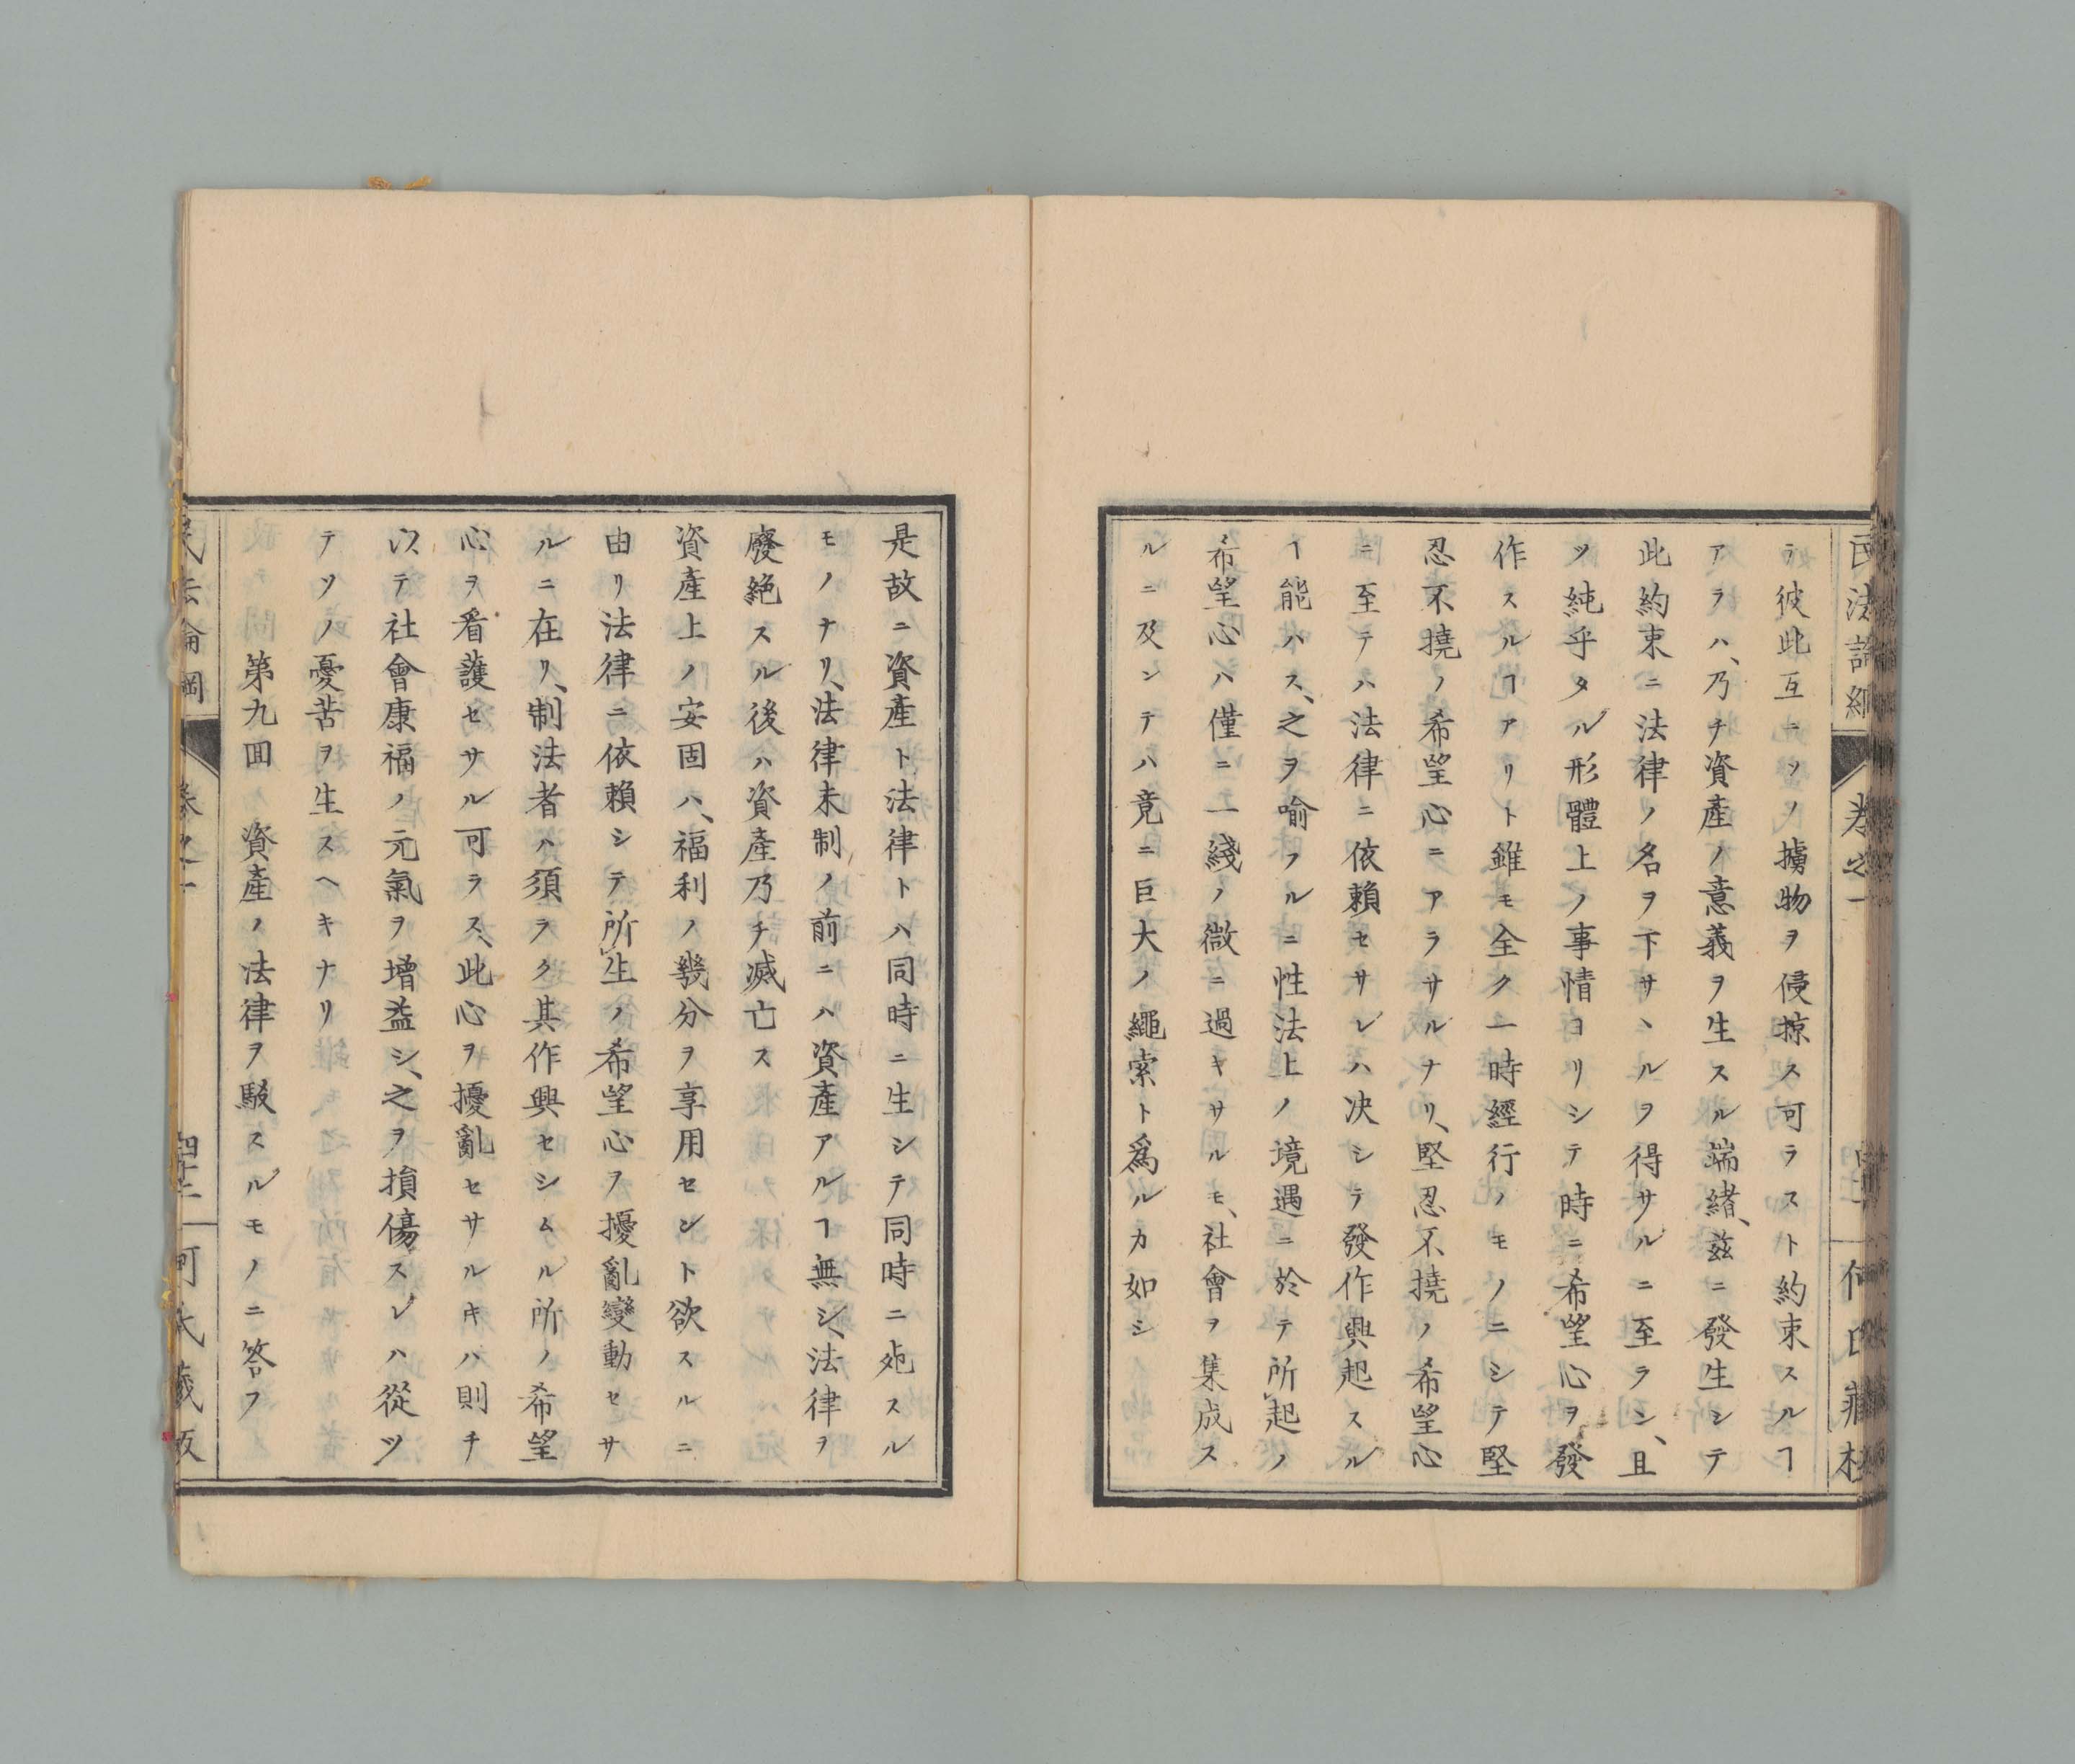 民法論綱
卷之一
何氏藏板
ラ彼此互ニソノ擄物ヲ侵掠ス可ラスト約束スルヿ
アラハ、乃チ資產ノ意義ヲ生スル端緒、茲ニ發生シテ
此約束ニ法律ノ名ヲ下サヽルヲ得サルニ至ラン、且
ツ純乎タル形體上ノ事情ヨリシテ時ニ希望心ヲ發
作スルヿアリト雖モ全ク一時經行ノモノニシテ堅
忍不撓ノ希望心ニアラサルナリ、堅忍不撓ノ希望心
ニ至テハ法律ニ依賴セサレハ决シテ發作興起スル
ヿ能ハス、之ヲ喻フルニ性法上ノ境遇ニ於テ所起ノ
希望心ハ僅ニ一綫ノ微ニ過キサルモ、社會ヲ集成ス
ルニ及ンテハ竟ニ巨大ノ繩索ト爲ルカ如シ
是故ニ資產ト法律トハ同時ニ生シテ同時ニ死スル
モノナリ、法律未制ノ前ニハ資產アルヿ無シ、法律ヲ
廢絕スル後ハ資產乃チ滅亡ス
資產上ノ安固ハ、福利ノ幾分ヲ享用セント欲スルニ
由リ法律ニ依賴シテ所生ノ希望心ヲ擾亂變動セサ
ルニ在リ、制法者ハ須ラク其作興セシムル所ノ希望
心ヲ看護セサル可ラス、此心ヲ擾亂セサルキハ則チ
以テ社會康福ノ元氣ヲ增益シ、之ヲ損傷スレハ從ツ
テソノ憂苦ヲ生スヘキナリ
第九回 資產ノ法律ヲ駁スルモノニ答フ
民法論綱
卷之一
四十二
何氏藏版